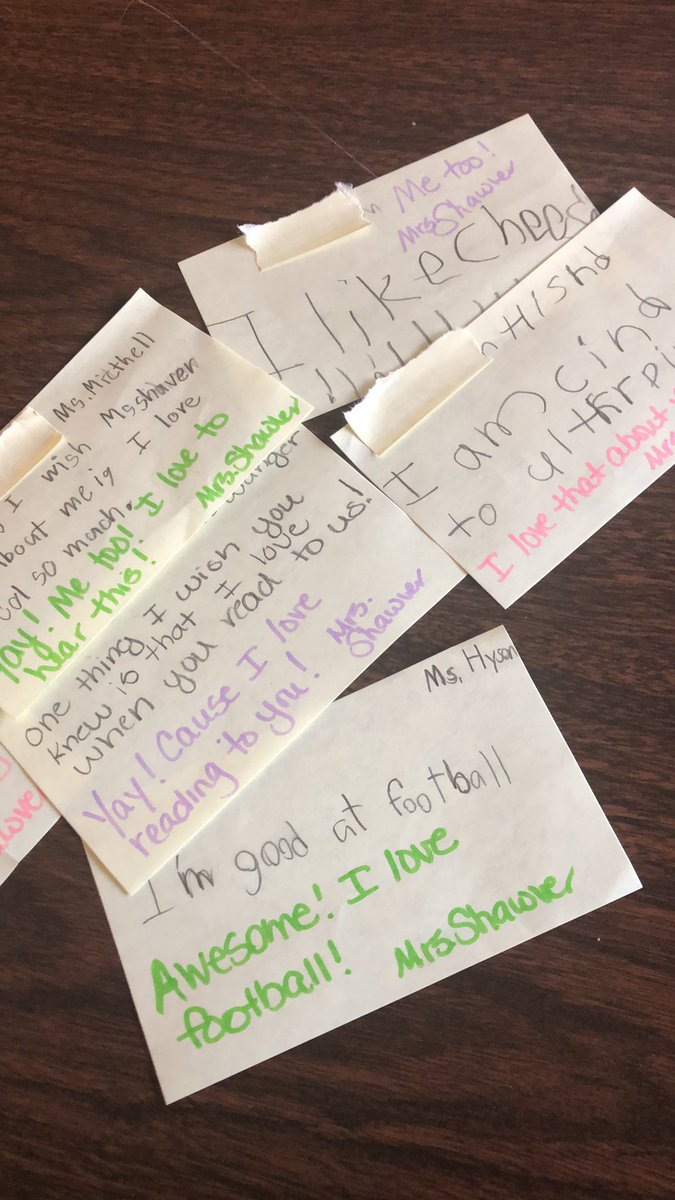 Me too!
Mrs. Shawver
I like chees
Hishd
I am cind
to
I love that about
Mrs
Ms. Mitchell
I wish Ms shaven
about me is I love
so much.
Yay! Me too! I love to
hear this! Mrs. Shawver
one thing I wish you
knew is that I love
when you read to us!
Yay! Cause I love
reading to you! Mrs.
Shawver
Ms. Hyson
I'm good at football
Awesome! I love
football! Mrs Shawver